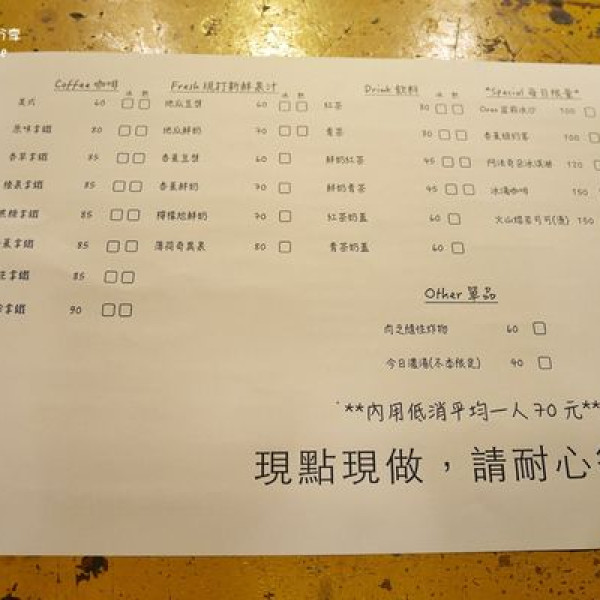 分享
Coffee 咖啡
冰 熱
美式 60
原味拿鐵 80
香草拿鐵 85
榛果拿鐵 85
焦糖拿鐵 85
蕉拿鐵 85
拿鐵 85
拿鐵 90
Fresh 現打新鮮果汁
冰 熱
地瓜豆漿 60
地瓜鮮奶 70
香蕉豆漿 60
香蕉鮮奶 70
檸檬冰鮮奶 70
薄荷奇異果 80
Drink 飲料
冰 熱
紅茶 30
青茶 30
鮮奶紅茶 45
鮮奶青茶 45
紅茶奶蓋 60
青茶奶蓋 60
*Special 每日限量*
Oreo 冰沙 100
香蕉 100
阿法奇朵冰淇淋 120
冰滴咖啡 150
火山熔岩可可(燙) 150
Other 單品
肉乏隨性炸物 60
今日濃湯(不季限定) 40
**內用低消平均一人70元**
現點現做，請耐心